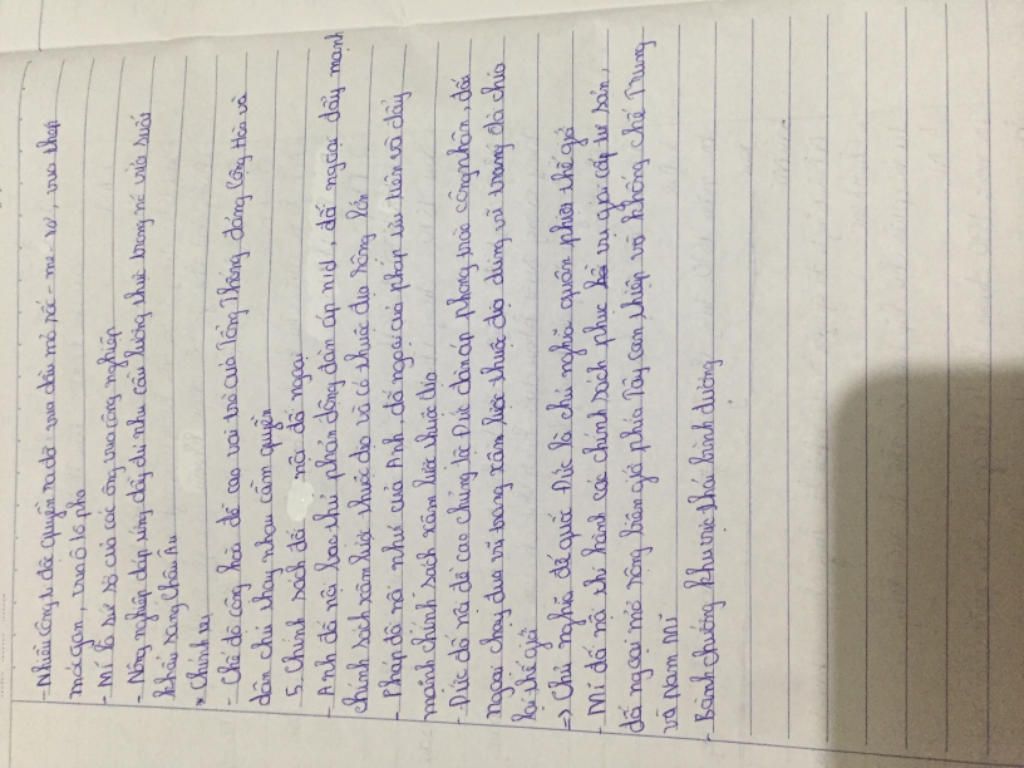 - Nhiều công ti độc quyền ra đời: vua dầu mỏ rốc-phe-lơ, vua thép
moócgan, vua ô tô pho
- Mĩ là sứ sở của các ông vua công nghiệp
- Nông nghiệp đáp ứng đầy đủ nhu cầu lương thực trong nc và xuất
khẩu sang Châu Âu
* Chính trị
- Chế độ cộng hòa đề cao vai trò của Tổng thống, đảng Cộng Hòa và
dân chủ thay nhau cầm quyền
5. Chính sách đối nội đối ngoại
- Anh đối nội bao thủ phản động đàn áp nd, đối ngoại đẩy mạnh
chính sách xâm lược thuộc địa và có thuộc địa rộng lớn
- Pháp đối nội như của Anh, đối ngoại của pháp ưu tiên và đẩy
mạnh chính sách xâm lược thuộc địa
- Đức đối nội đề cao chủng tộc Đức đàn áp phong trào công nhân, đối
ngoại chạy đua vũ trang xâm lược thuộc địa dùng vũ trang đòi chia
lại thế giới
=> Chủ nghĩa đế quốc Đức là chủ nghĩa quân phiệt thế giới
- Mĩ đối nội thi hành các chính sách phục vụ giai cấp tư sản,
đối ngoại mở rộng biên giới phía Tây can thiệp và khống chế Trung
và Nam Mĩ
- Bành chướng khu vực thái bình dương